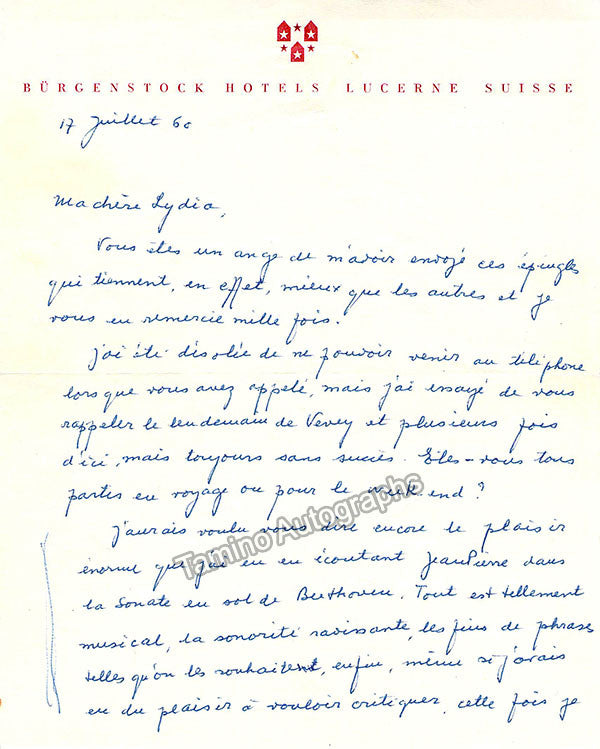 BÜRGENSTOCK HOTELS LUCERNE SUISSE
17 Juillet 60
Ma chère Lydia,
Vous êtes un ange de m'avoir envoyé ces épingles
qui tiennent, en effet, mieux que les autres et je
vous en remercie mille fois.
J'ai été désolée de ne pouvoir venir au téléphone
lorsque vous avez appelé, mais j'ai essayé de vous
rappeler le lendemain de Vevey et plusieurs fois
d'ici, mais toujours sans succès. Êtes-vous tous
partis en voyage ou pour le week end?
J'aurais voulu vous dire encore le plaisir
Tamino Autographs
énorme que j'ai eu en écoutant Jean Pierre dans
la Sonate en sol de Beethoven. Tout est tellement
musical, la sonorité ravissante, les fins de phrases
telles qu'on les souhaitent, enfin, même si j'avais
eu du plaisir à vouloir critiquer, cette fois je